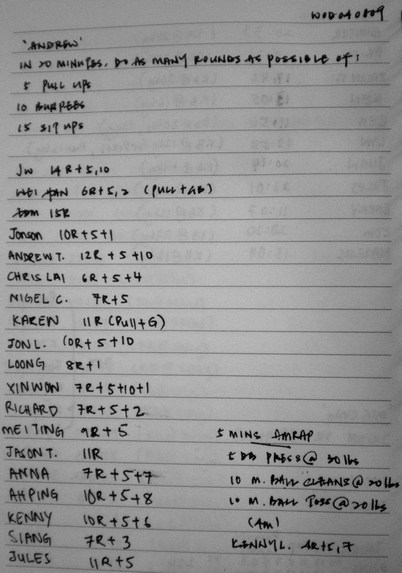 WOD040809
'ANDREW'
IN 20 MINUTES, DO AS MANY ROUNDS AS POSSIBLE OF:
5 PULL UPS
10 BURPEES
15 SIT UPS
JW 14R+5,10
WEI 6R+5,2 (PULL+GB)
15R
Jonson 10R+5+1
ANDREW T. 12R+5+10
CHRIS LAI 6R+5+4
NIGEL C. 7R+5
KAREN 11R (Pull+G)
JON L. 10R+5+10
LOONG 8R+1
YINWON 7R+5+10+1
RICHARD 7R+5+2
MEITING 9R+5
JASON T. 11R
ANNA 7R+5+7
AHPING 10R+5+8
KENNY 10R+5+6
SIANG 7R+3
JULES 11R+5
5 MINS AMRAP
5 DB PRESS @ 30 lbs
10 M. BALL CLEANS @ 20 lbs
10 M. BALL TOSS @ 20 lbs
(4m)
KENNY L. 4R+5,7